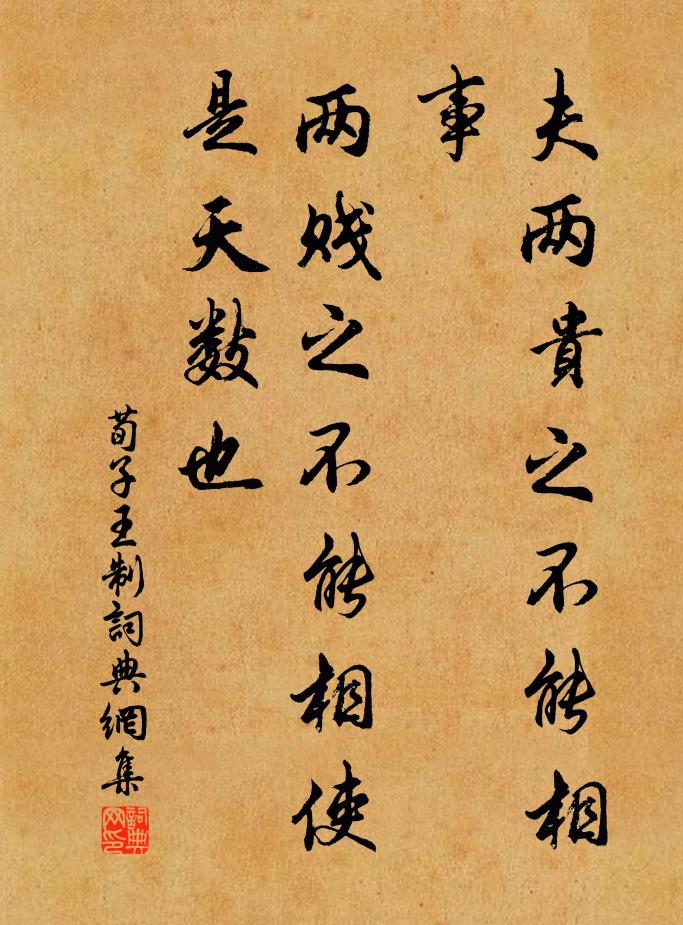 夫两貴之不能相
事
两贱之不能相使
是天数也
荀子王制詞典網集
詞典网印